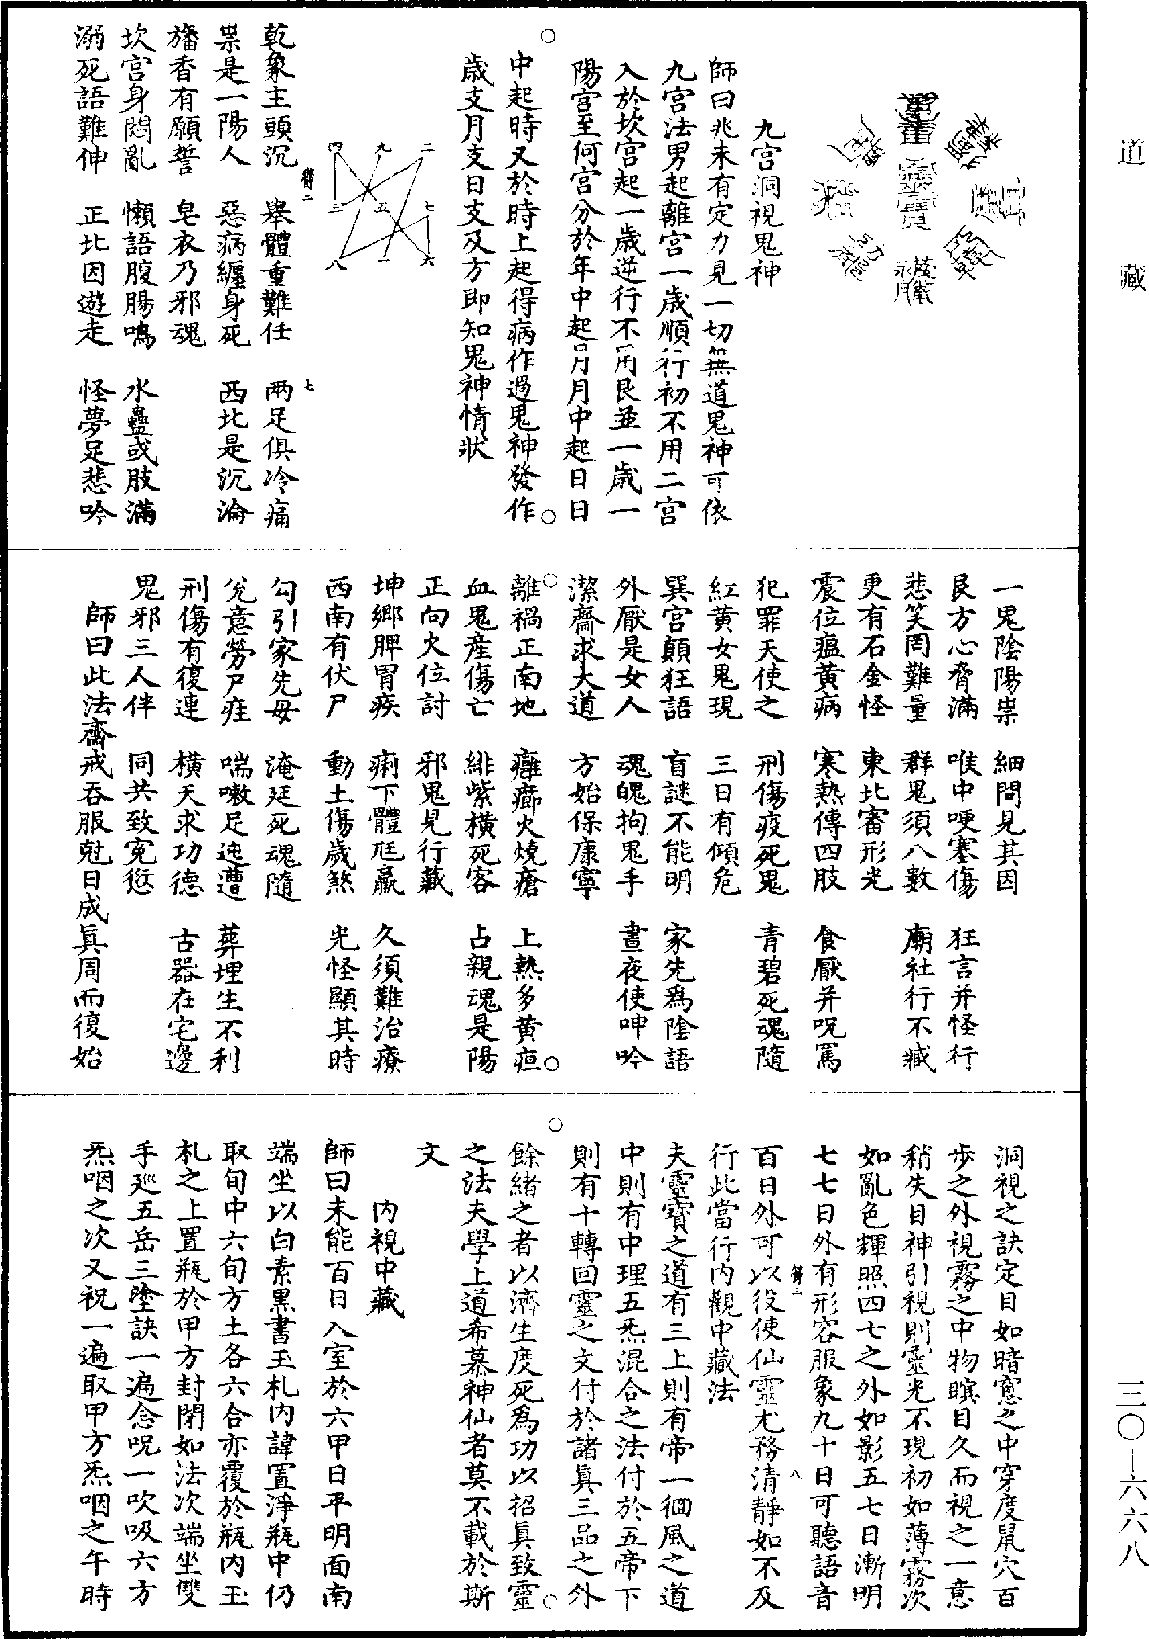 道藏
九宮洞視鬼神
師曰兆未有定力見一切無道鬼神可依
九宮法男起離宮一歲順行初不用二宮
入於坎宮起一歲逆行不用艮並一歲一
陽宮至何宮分於年中起月月中起日日
中起時又於時上起得病作過鬼神發作
歲支月支日支及方即知鬼神情狀
二 七 六
九 五 一
四 三 八
乾象主頭沉 舉體重難任 兩足俱冷痛
祟是一陽人 惡病纏身死 西北是沉淪
旛香有願誓 皂衣乃邪魂
坎宮身悶亂 懶語腹腸鳴 水蠱或肢滿
溺死語難伸 正北因遊走 怪夢足悲吟
一鬼陰陽祟 細問見其因
艮方心脅滿 喉中哽塞傷 狂言并怪行
悲笑罔難量 群鬼須八數 廟社行不臧
更有石金怪 東北審形光
震位瘟黃病 寒熱傳四肢 食厭并呪罵
犯罪天使之 刑傷疫死鬼 青碧死魂隨
紅黃女鬼現 三日有傾危
巽宮顛狂語 盲謎不能明 家先爲陰語
外厭是女人 魂魄拘鬼手 晝夜使呻吟
潔齋求大道 方始保康寧
離禍正南地 癰癤火燒瘡 上熱多黃疸
血鬼産傷亡 緋紫橫死客 占親魂是陽
正向火位討 邪鬼見行藏
坤鄉脾胃疾 痢下體尫羸 久須難治療
西南有伏尸 動土傷歲煞 光怪顯其時
勾引家先母 淹延死魂隨
兌意勞尸疰 喘嗽足迍遭 葬埋生不利
刑傷有復連 橫夭求功德 古器在宅邊
鬼邪三人伴 同共致寃愆
師曰此法齋戒吞服尅日成眞周而復始
洞視之訣定目如暗窻之中穿度鼠穴百
步之外視霧之中物瞑目久而視之一意
稍失目神引視則靈光不現初如薄霧次
如亂色輝照四七之外如影五七日漸明
七七日外有形容服象九十日可聽語音
百日外可以役使仙靈尤務清靜如不及
行此當行內觀中藏法
夫靈寶之道有三上則有帝一徊風之道
中則有中理五炁混合之法付於五帝下
則有十轉回靈之文付於諸眞三品之外
餘緒之者以濟生度死爲功以招眞致靈
之法夫學上道希慕神仙者莫不載於斯
文
內視中藏
師曰未能百日入室於六甲日平明面南
端坐以白素黑書玉札內諱置淨瓶中仍
取旬中六旬方土各六合亦覆於瓶內玉
札之上置瓶於甲方封閉如法次端坐雙
手廵五岳三墬訣一遍念呪一吹吸六方
炁咽之次又祝一遍取甲方炁咽之午時
三〇—六六八